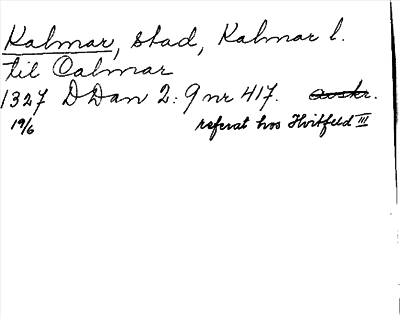 Kalmar, stad, Kalmar l.
til Calmar
1327 DDan 2:9 nr 417. avskr.
19/6 referat hos Hvitfeld III